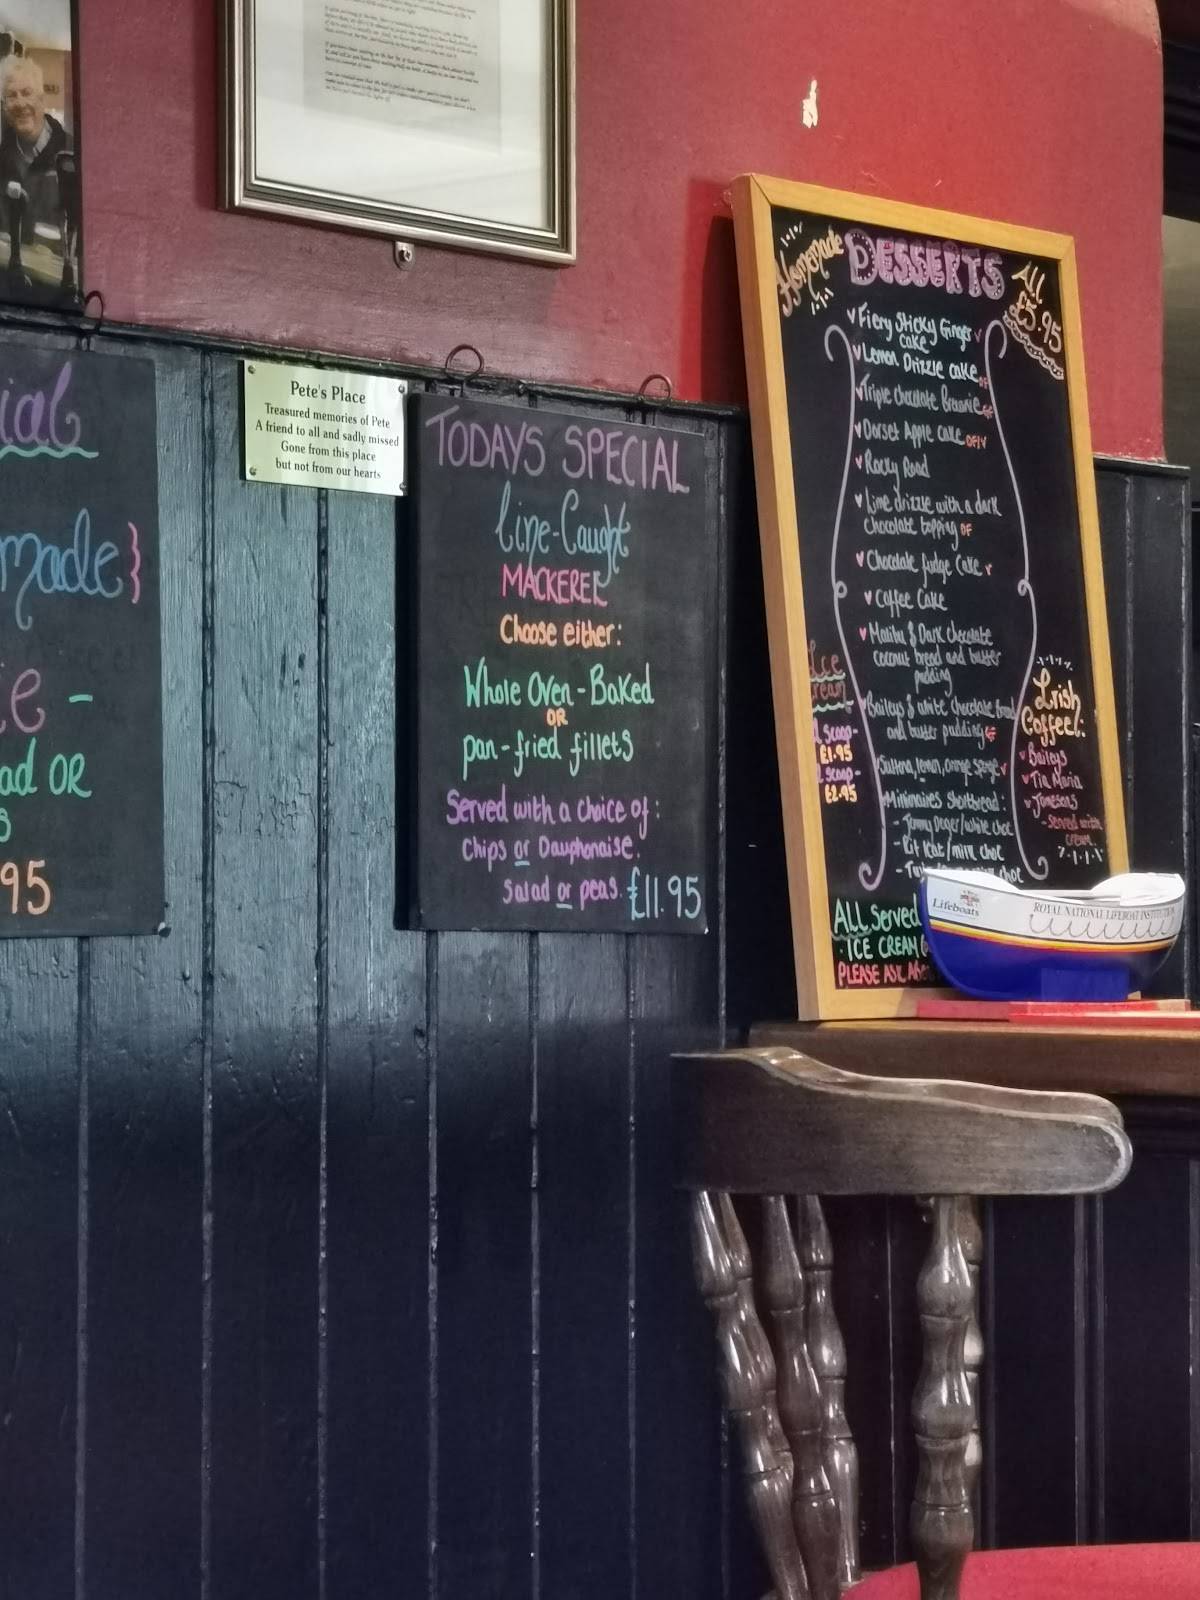 ial
made}
e -
ad OR
s
95
Pete's Place
Treasured memories of Pete
A friend to all and sadly missed
Gone from this place
but not from our hearts
TODAYS SPECIAL
Line-Caught
MACKEREL
Choose either:
Whole Oven-Baked
OR
pan-fried fillets
Served with a choice of:
Chips or Dauphonaise.
Salad or peas. £11.95
Homemade DESSERTS All
£5.95
Fiery Sticky Ginger
cake
Lemon Drizzle cake GF
Triple Chocolate Brownie GF
Dorset Apple cake GF/V
Rocky Road
Lime drizzle with a dark
chocolate topping GF
Chocolate fudge Cake v
Coffee Cake
Malibu & Dark chocolate
coconut bread and butter
pudding
Baileys & white chocolate bread
and butter pudding
Sultana, lemon, orange sponge v
Millionaires Shortbread:
- Jammy Doger/white choc
- Kit Kat/milk choc
choc
Ice
Cream
scoop-
£1.95
scoop-
£2.95
Irish
Coffee:
Baileys
Tia Maria
Jamesons
- Served with
cream
ALL Served
ICE CREAM
PLEASE ASK
Lifeboats
ROYAL NATIONAL LIFEBOAT INSTITUTION